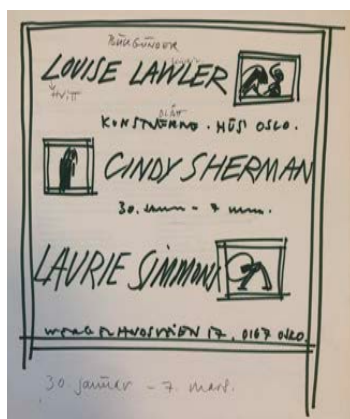 BURGUNDER
LOUISE LAWLER
HVITT
BLÅTT
KUNSTNERNES HUS OSLO.
CINDY SHERMAN
30. - 7
LAURIE SIMMONS
17, 0167 OSLO.
30. januar - 7. mars.